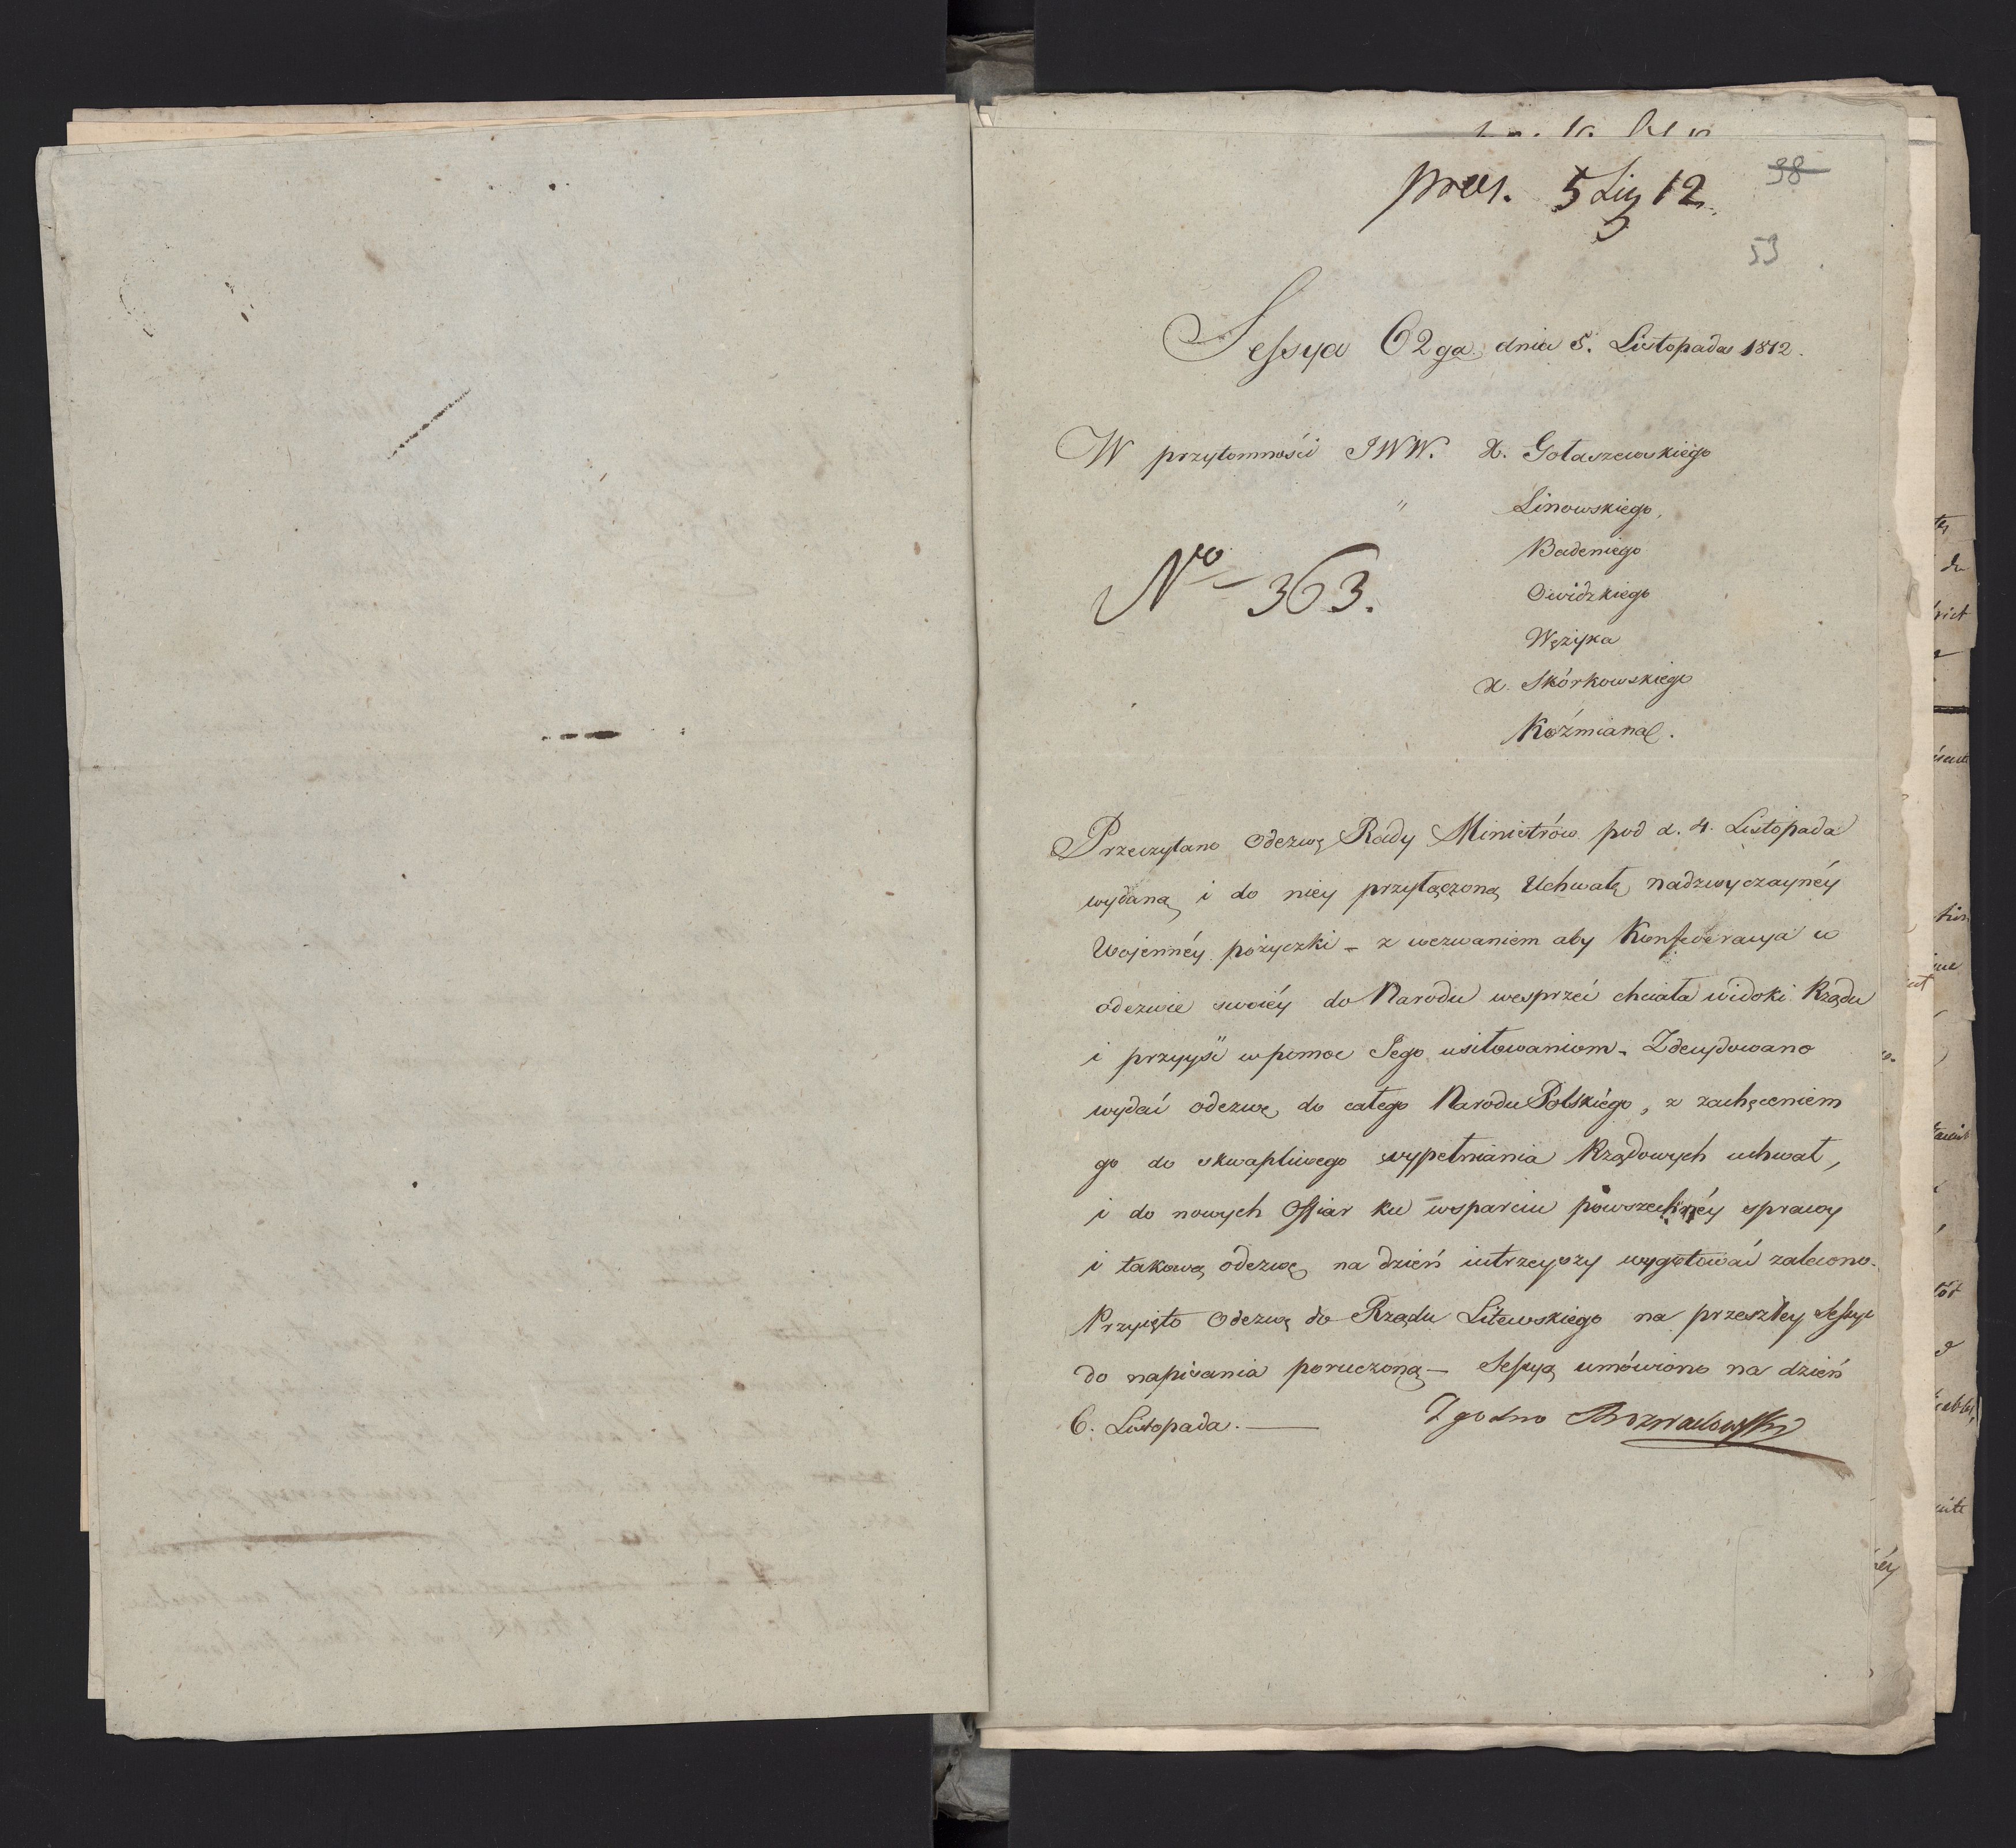 38
53
Sessya 62ga dnia 5. Listopada 1812.
W przytomności JWW. X. Gołaszewskiego
" Linowskiego,
Badeniego
No 363.
Owidzkiego
Wężyka
X. Skórkowskiego
Koźmiana.
Przeczytano Odezwę Rady Ministrów pod d. 4. Listopada
wydaną i do niey przyłączoną Uchwałę nadzwyczaynéy
Wojennéy pożyczki – z wezwaniem aby Konfederacya w
odezwie swoiéy do Narodu wesprzeć chciała widoki Rządu
i przyyść w pomoc Jego usiłowaniom – Zdecydowano
wydać odezwę do całego Narodu Polskiégo, z zachęceniem
go do skwapliwego wypełniania Rządowych uchwał,
i do nowych Offiar ku wsparciu powszechnéy sprawy
i takową odezwę na dzień iutrzeyszy wygotować zalecono.
Przyięto Odezwę do Rządu Litewskiego na przeszłey Sessyi
do napisania poruczoną – Sessyą umówiono na dzień
6. Listopada. — Zgodno